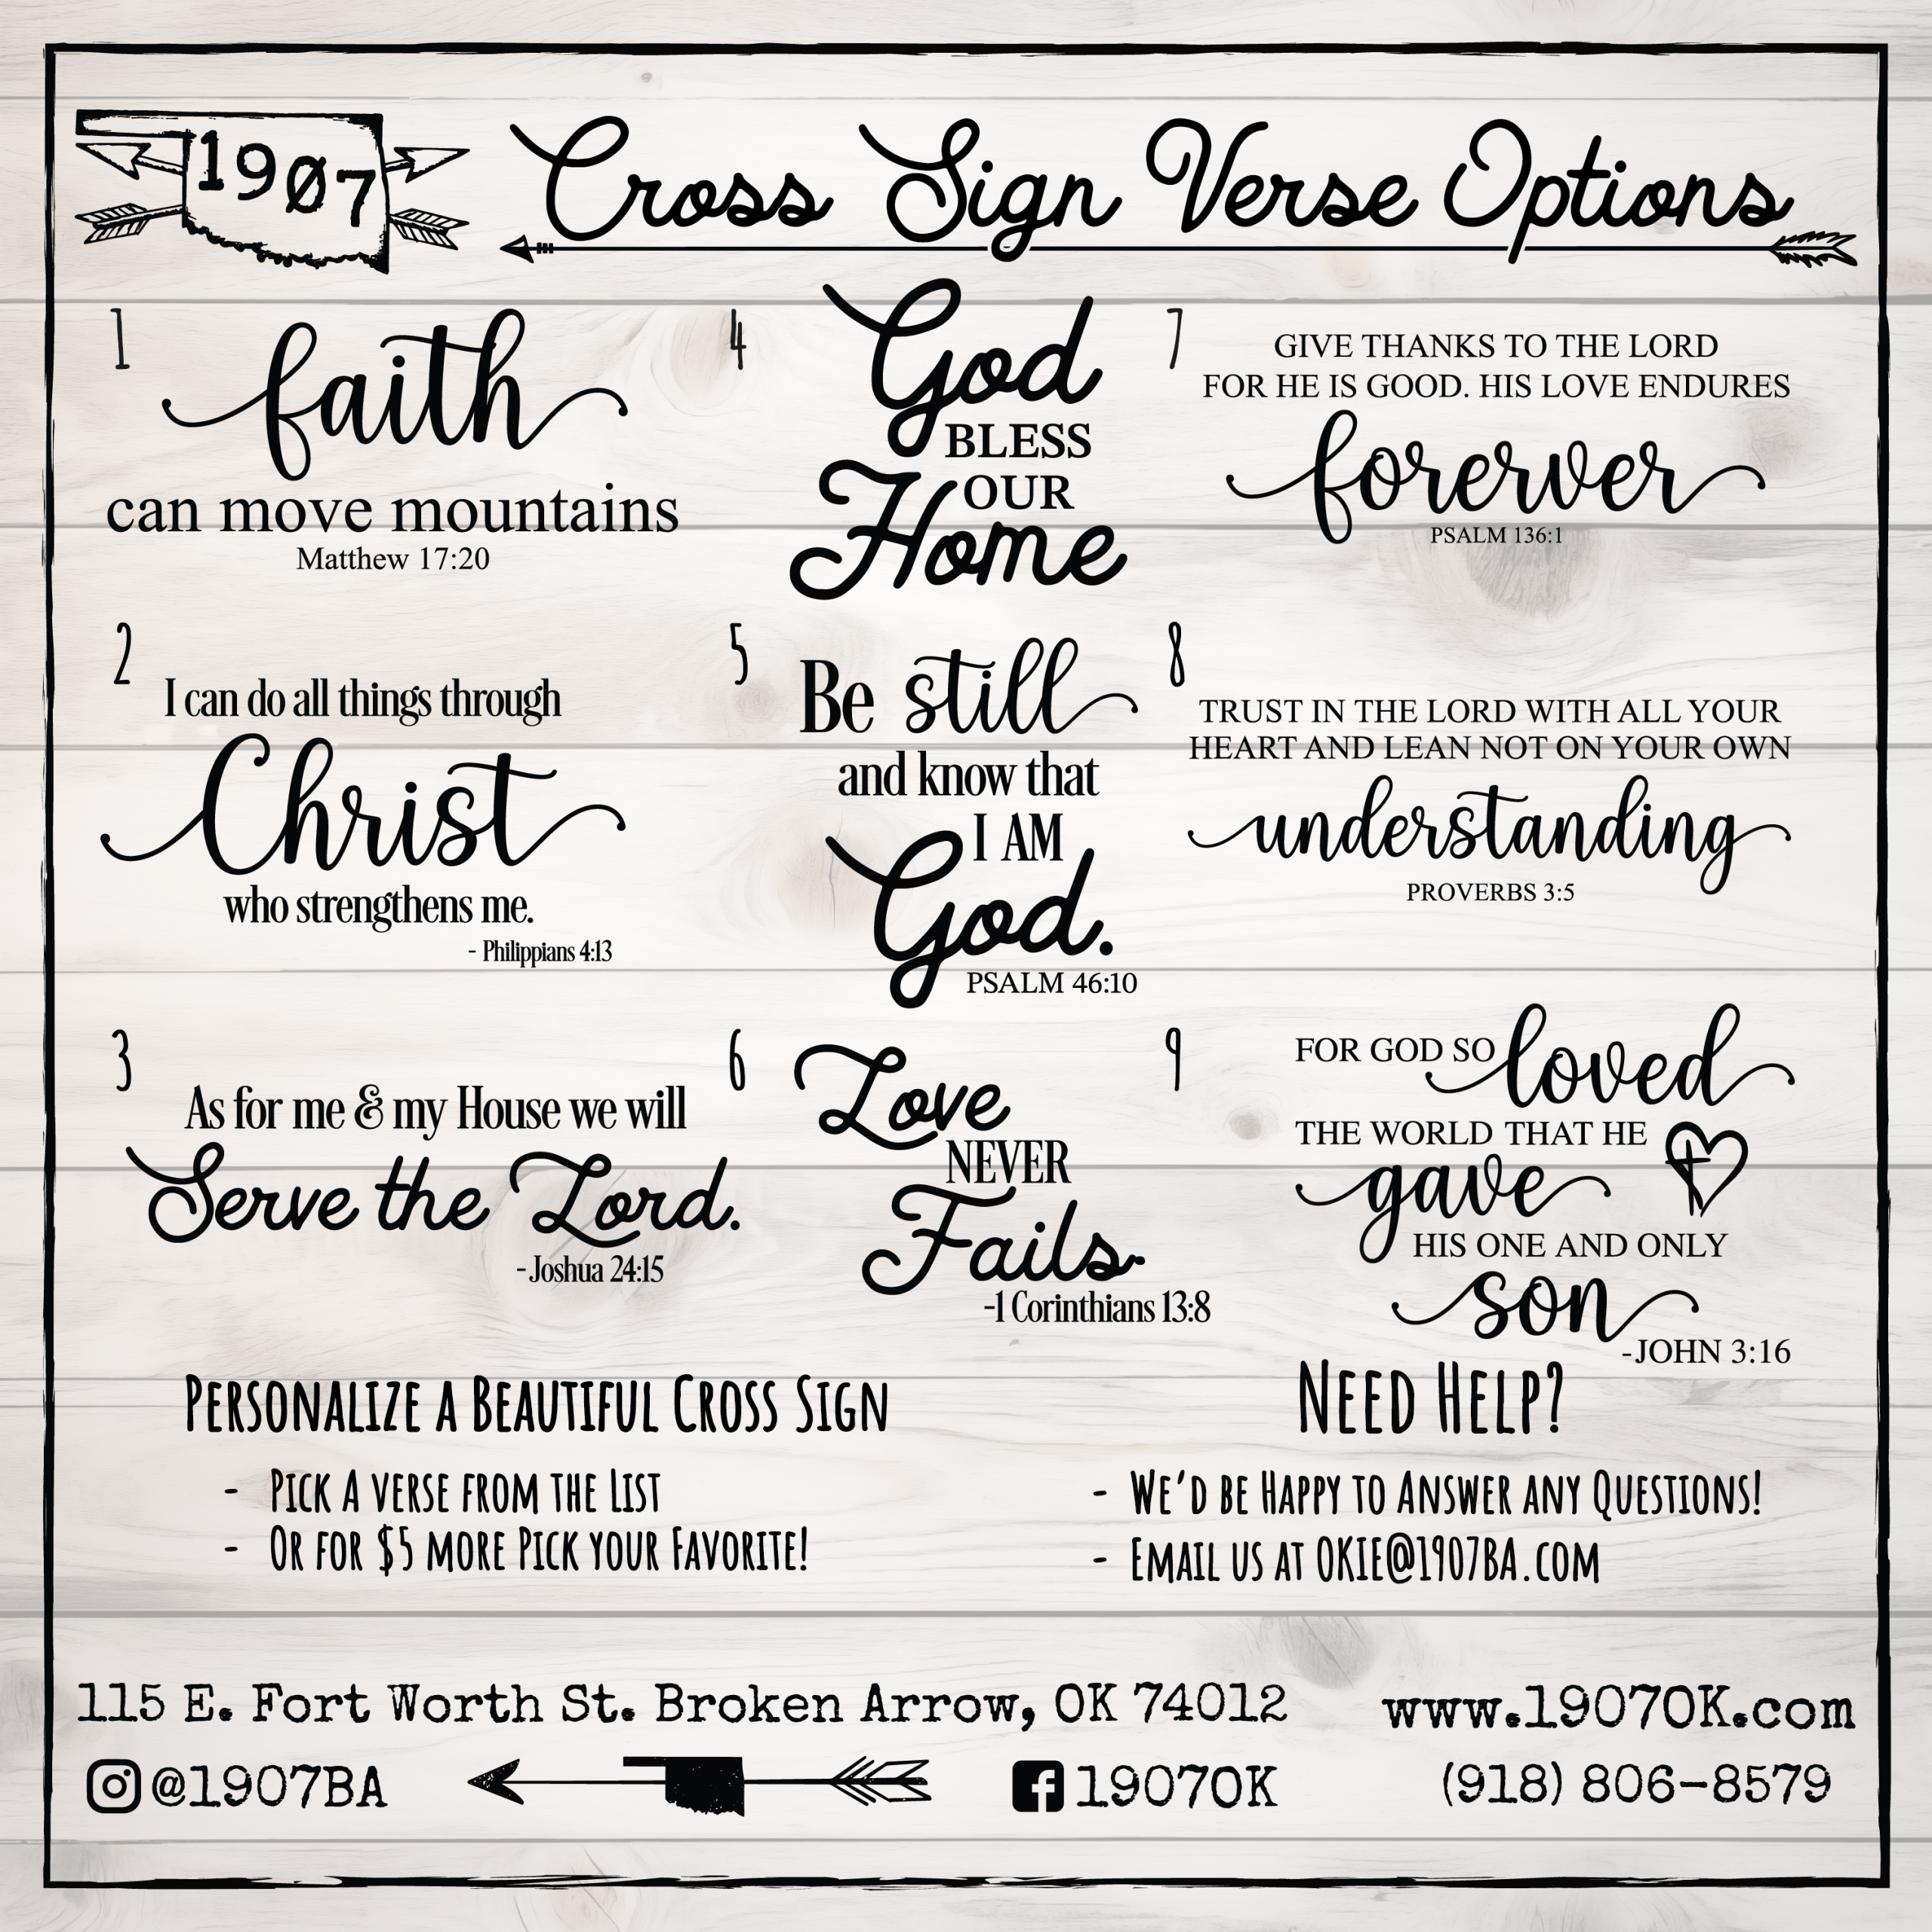 1907
Cross Sign Verse Options
1
faith
can move mountains
Matthew 17:20
2
I can do all things through
Christ
who strengthens me.
- Philippians 4:13
3
As for me & my House we will
Serve the Lord.
-Joshua 24:15
4
God
BLESS
OUR
Home
5
Be still
and know that
I AM
God.
PSALM 46:10
6
Love
NEVER
Fails.
-1 Corinthians 13:8
7
GIVE THANKS TO THE LORD
FOR HE IS GOOD. HIS LOVE ENDURES
forerver
PSALM 136:1
8
TRUST IN THE LORD WITH ALL YOUR
HEART AND LEAN NOT ON YOUR OWN
understanding
PROVERBS 3:5
9
FOR GOD SO loved
THE WORLD THAT HE
gave
HIS ONE AND ONLY
son
-JOHN 3:16
Personalize a Beautiful Cross Sign
- Pick A verse from the List
- Or for $5 more Pick your Favorite!
Need Help?
- We'd be Happy to Answer any Questions!
- Email us at OKIE@1907BA.com
115 E. Fort Worth St. Broken Arrow, OK 74012
www.1907OK.com
@1907BA
1907OK
(918) 806-8579